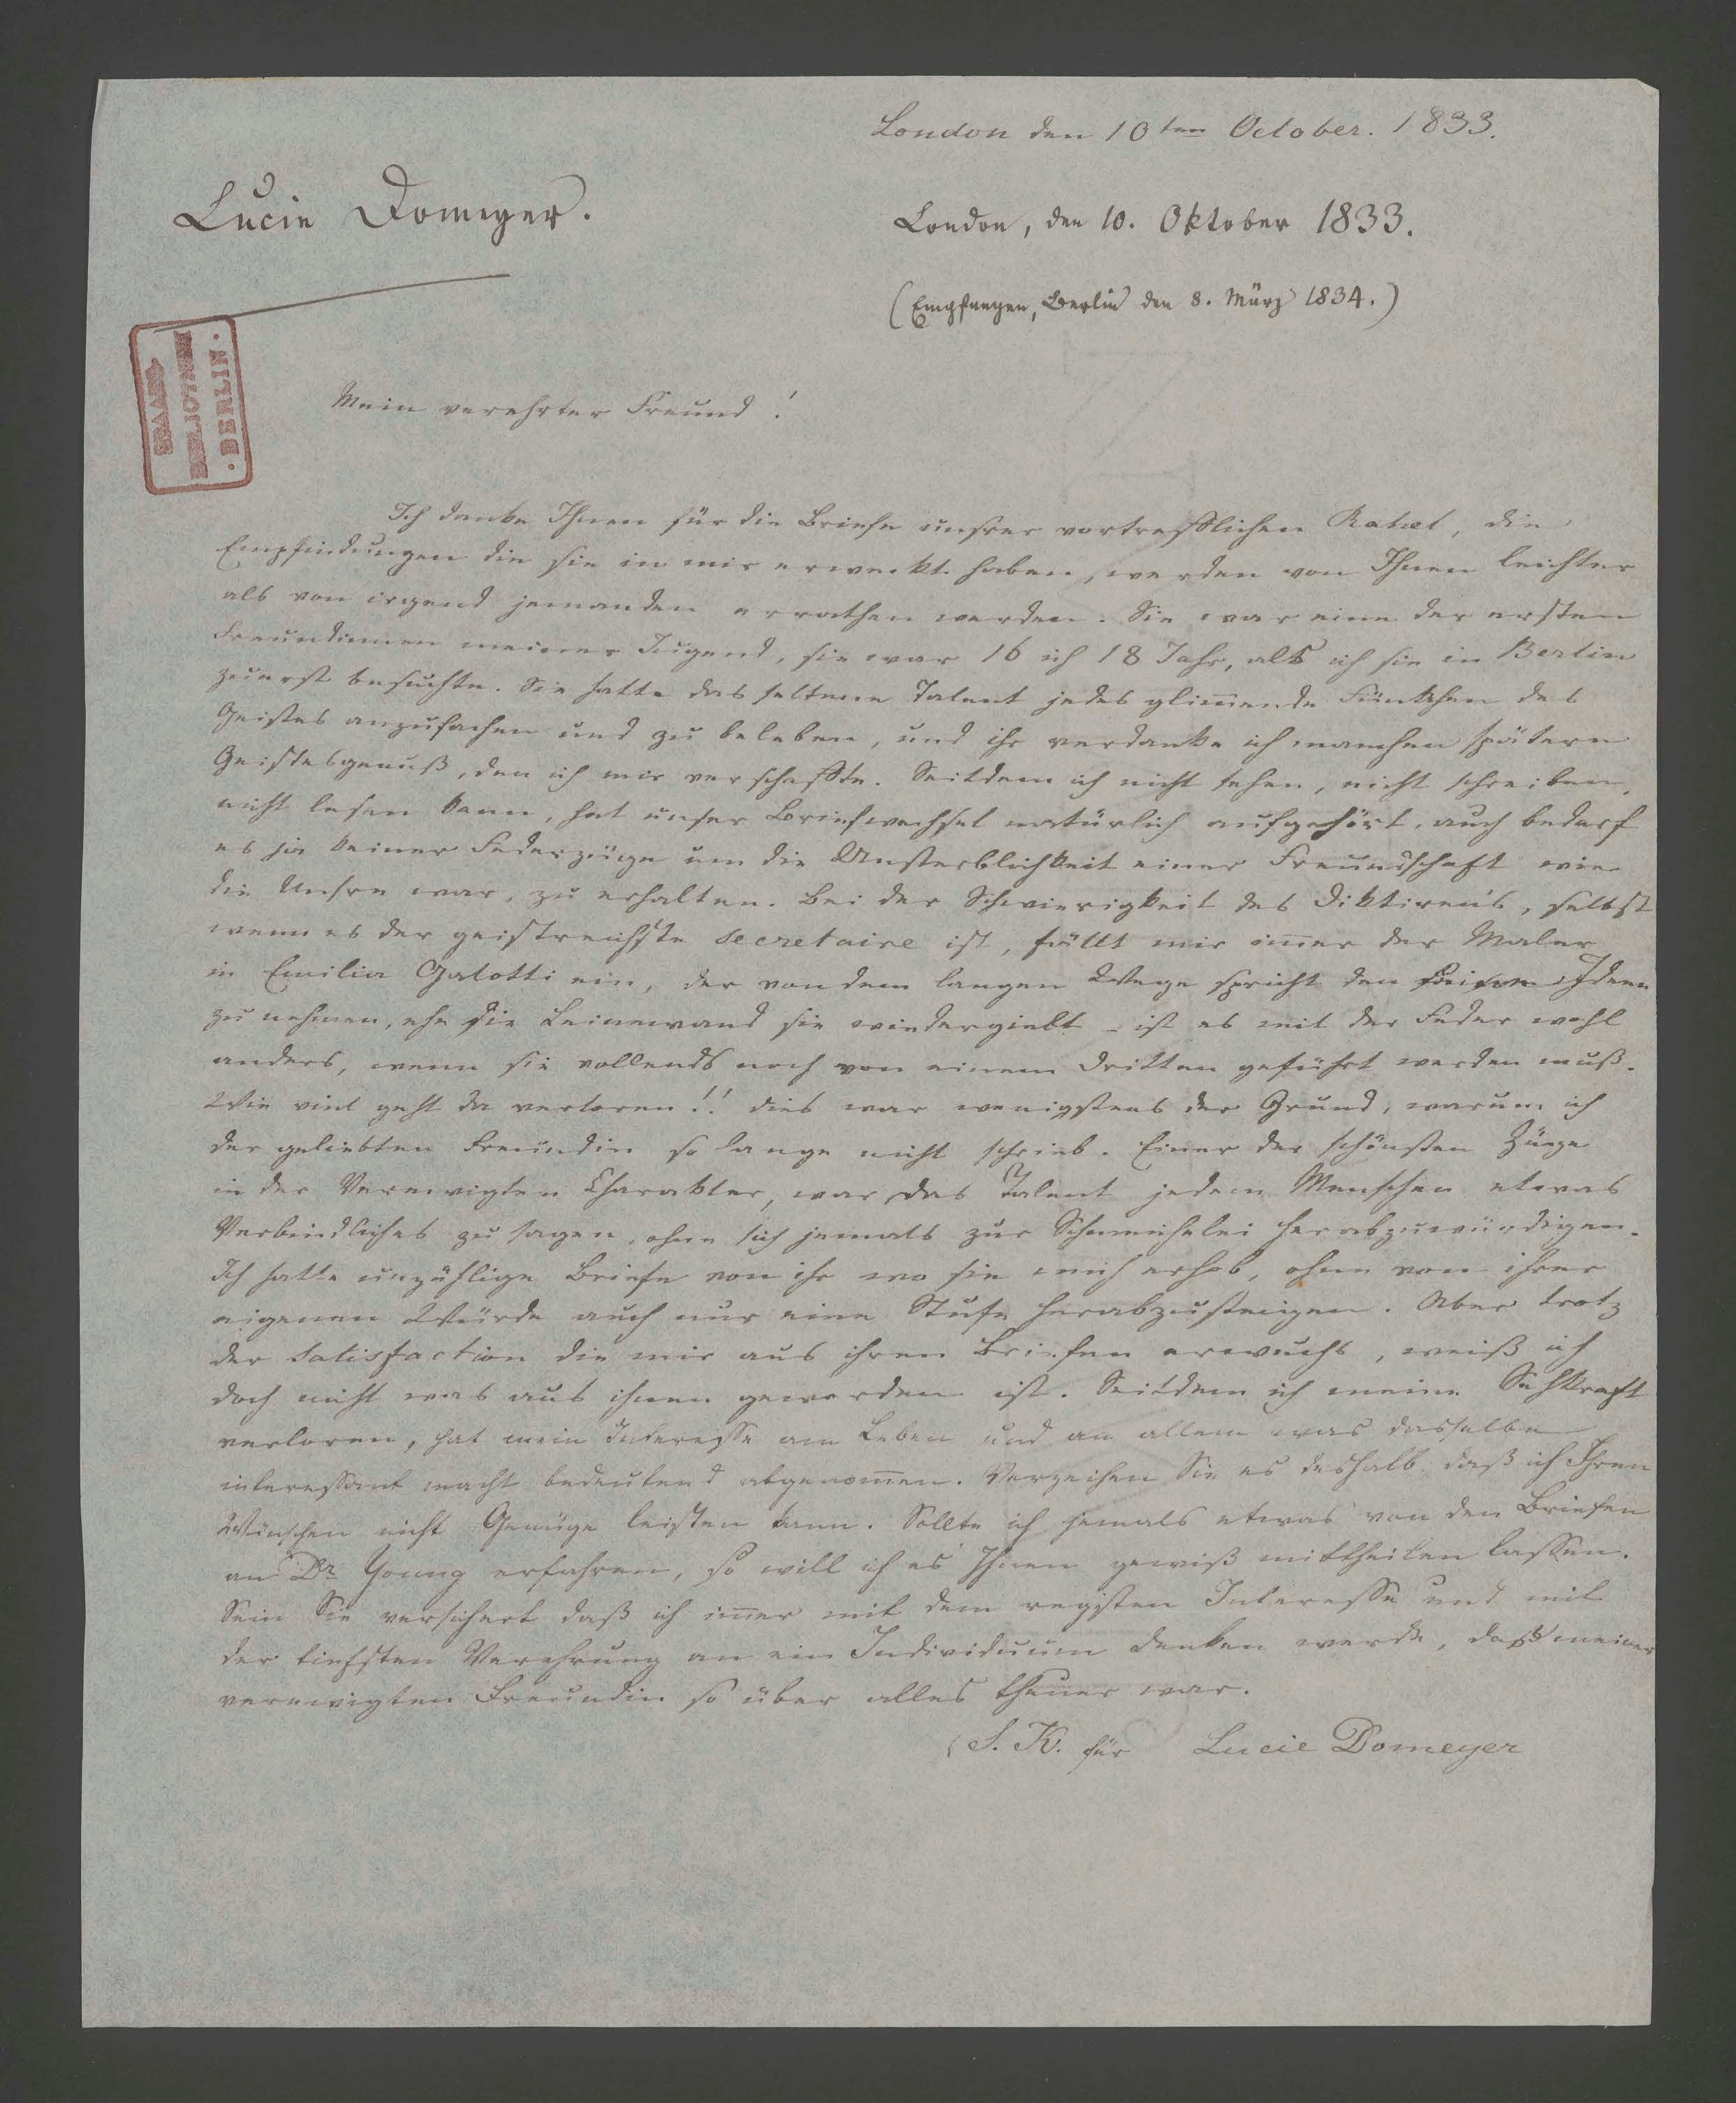 London den 10ten October. 1833.
Lucie Domeyer.
London, den 10. Oktober 1833.
(Empfangen, Berlin den 8. März 1834.)
STAATS-
BIBLIOTHEK
· BERLIN ·
Mein verehrter Freund!
Ich danke Ihnen für die Briefe unsrer vortrefflichen Rahel, die
Empfindungen die sie in mir erweckt haben, werden von Ihnen leichter
als von irgend jemanden errathen werden. Sie war eine der ersten
Freundinnen meiner Jugend, sie war 16 ich 18 Jahr, als ich sie in Berlin
zuerst besuchte. Sie hatte das seltene Talent jedes glim̅ende Fünkchen des
Geistes anzufachen und zu beleben, und ihr verdanke ich manchen spätern
Geistesgenuß, den ich mir verschaffte. Seitdem ich nicht sehen, nicht schreiben,
nicht lesen kann, hat unser Briefwechsel natürlich aufgehört, auch bedarf
es ja keiner Federzüge um die Unsterblichkeit einer Freundschaft wie
die Unsre war, zu erhalten. Bei der Schwierigkeit des Diktiren's, selbst
wenn es der geistreichste secretaire ist, fällt mir im̅er der Maler
in Emilia Galotti ein, der von dem langen Wege spricht den Ideen
zu nehmen, ehe die Leinewand sie wiedergiebt – ist es mit der Feder wohl
anders, wenn sie vollends noch von einem Dritten geführt werden muß.
Wie viel geht da verloren!! dies war wenigstens der Grund, warum ich
der geliebten Freundin so lange nicht schrieb. Einer der schönsten Züge
in der Verewigten Charakter, war das Talent jedem Menschen etwas
Verbindliches zu sagen, ohne sich jemals zur Schmeichelei herabzuwürdigen.
Ich hatte unzählige Briefe von ihr wo sie mich erhob, ohne von ihrer
eigenen Würde auch nur eine Stufe herabzusteigen. Aber trotz
der Satisfaction die mir aus ihren Briefen erwuchs, weiß ich
doch nicht was aus ihnen geworden ist. Seitdem ich meine Sehkraft
verloren, hat mein Interesse am Leben und an allem was dasselbe
interessant macht bedeutend abgenom̅en. Verzeihen Sie es deshalb daß ich Ihren
Wünschen nicht Genüge leisten kann. Sollte ich jemals etwas von den Briefen
an Dr. Young erfahren, so will ich es Ihnen gewiß mittheilen lassen.
Sein Sie versichert daß ich im̅er mit dem regsten Interesse und mit
der tiefsten Verehrung an ein Individuum denken werde, daß meiner
verewigten Freundin so über alles theuer war.
S. K. für Lucie Domeyer